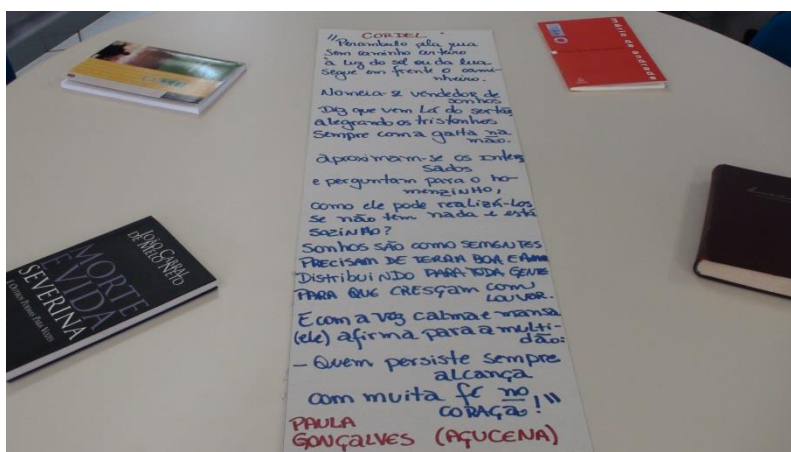 CORDEL
"Perambulo pela rua
sem caminho certeiro
à luz do sol ou da lua
segue em frente o cami-
nheiro.
Nomeia-se vendedor de
sonhos
Diz que vem lá do sertão
alegrando os tristonhos
sempre com a gaita na
mão.
Aproximam-se os interes
sados
e perguntam para o ho-
menzinho,
como ele pode realizá-los
se não tem nada e está
sozinho?
Sonhos são como sementes
PRECISAM DE TERRA BOA E
DistribuiNDO PARA TODA GENTE
PARA QUE CRESÇAM COM
LOUVOR.
E com a voz calma e mansa
(ele) afirma para a multi-
dão:
- Quem persiste sempre
alcança
com muita fé no
CORAÇÃO!"
PAULA
GONÇALVES (AÇUCENA)
mário de andrade
JOÃO CABRAL
DE MELO NETO
MORTE
E VIDA
SEVERINA
E OUTROS POEMAS PARA VOZES